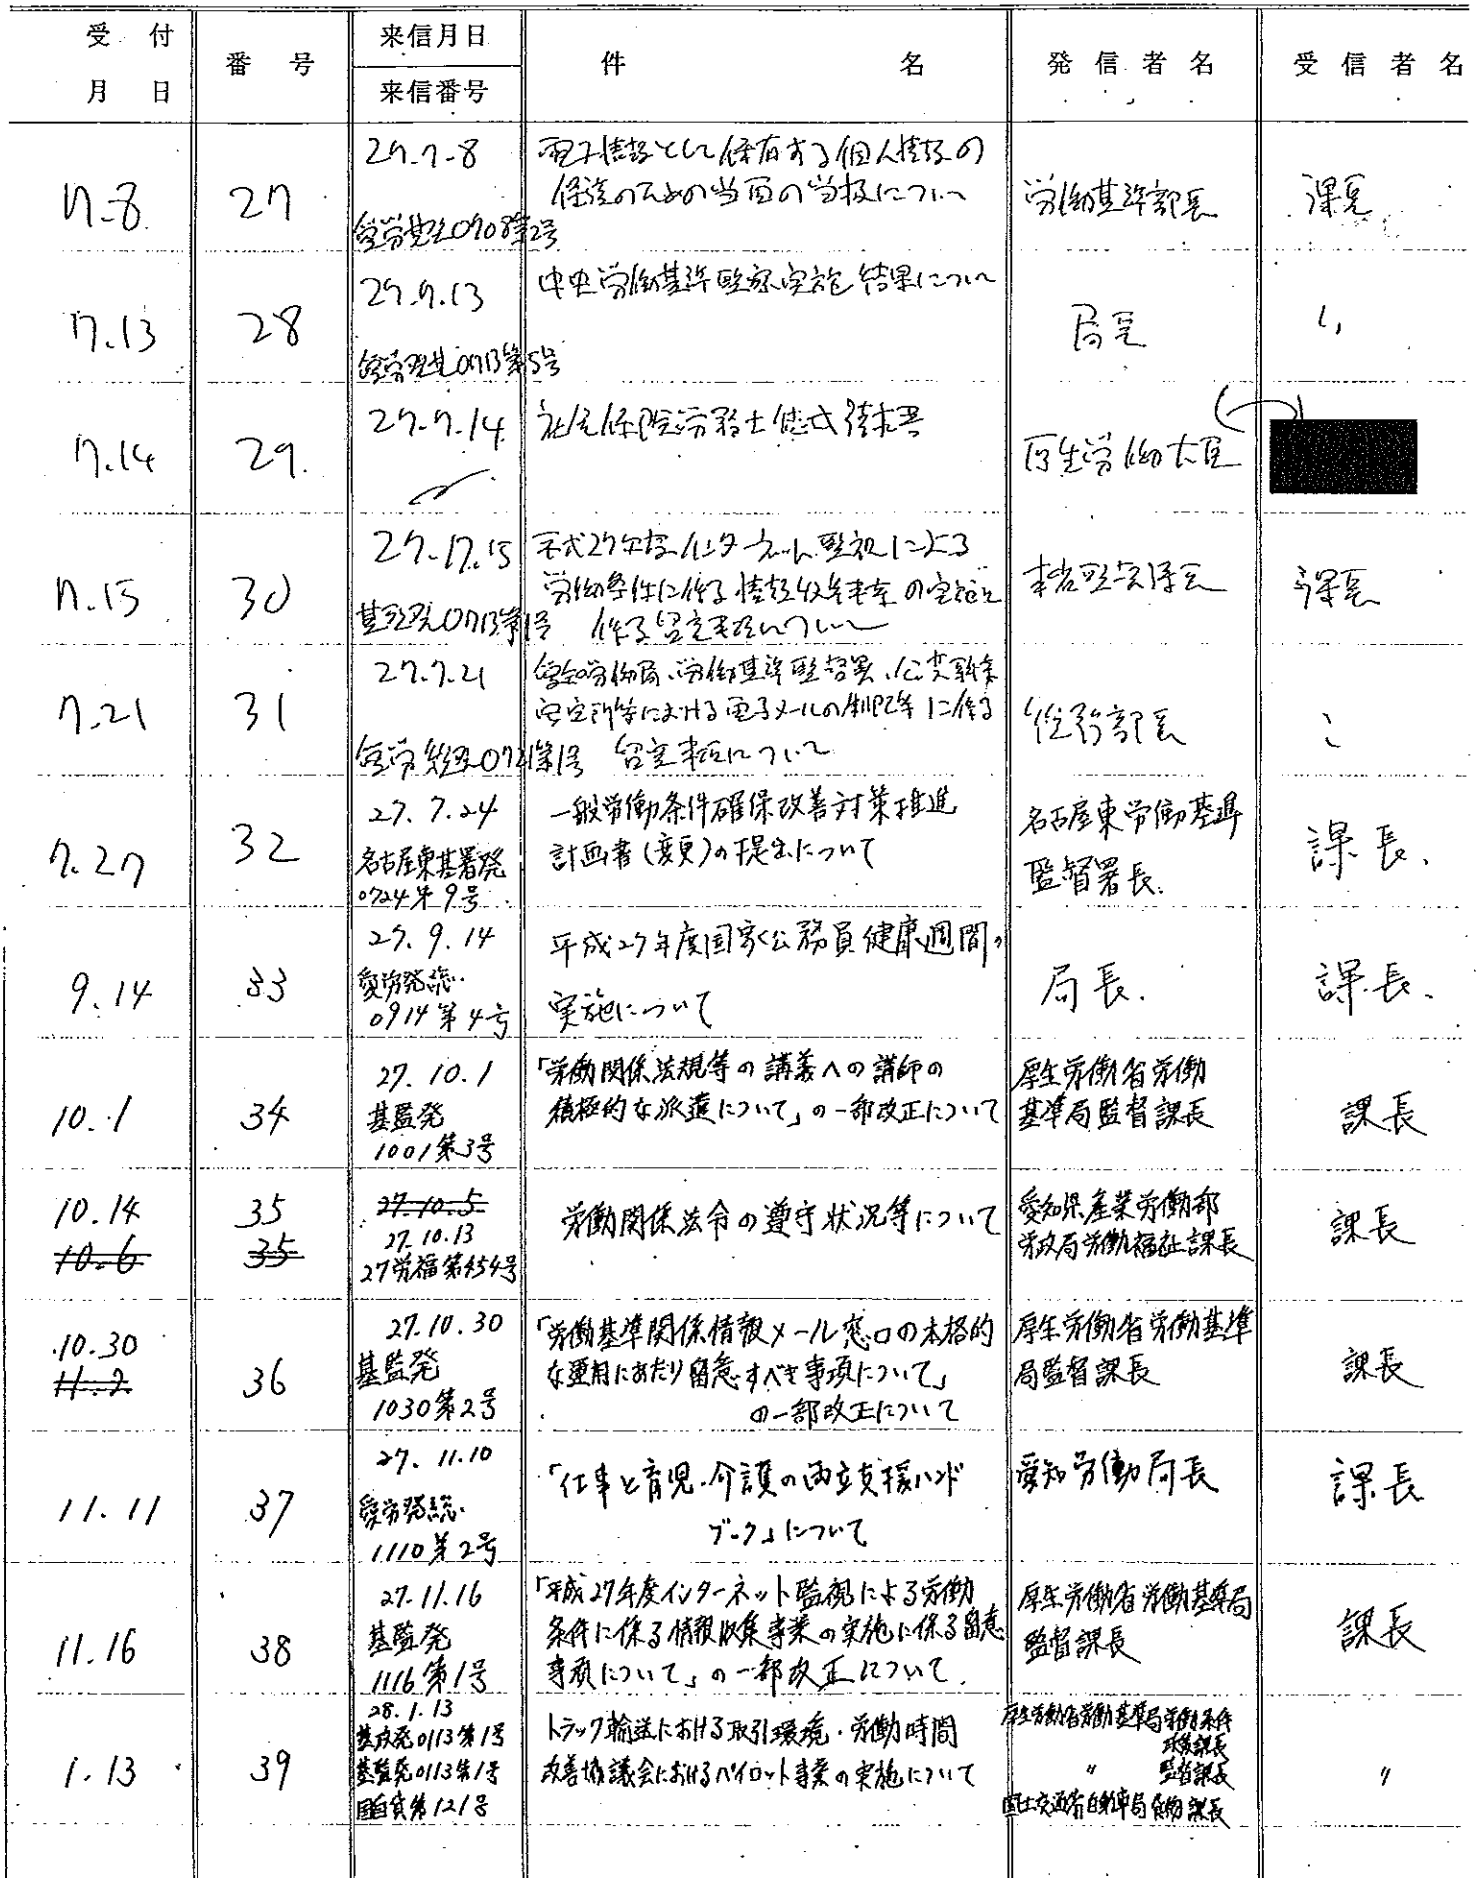 受付月日
番号
来信月日
来信番号
件名
発信者名
受信者名
7.8
27
27.7.8
愛労基発0708第2号
電子情報として保有する個人情報の
保護のための当面の
について
労働基準部長
課長
7.13
28
27.7.13
0713第5号
中央労働基準監察実施結果について
局長
7.14
29.
27.7.14
社会保険労務士
請求書
厚生労働大臣
7.15
30
27.7.15
基監発0713第1号
平成27年度インターネット監視による
労働条件に係る情報収集事業の実施に
係る留意事項について
本省監督課長
課長
7.21
31
27.7.21
0721第1号
愛知労働局、労働基準監督署、公共職業
安定所等における電子メールの
等に係る
留意事項について
総務部長
7.27
32
27.7.24
名古屋東基署発
0724第9号
一般労働条件確保改善対策推進
計画書(変更)の提出について
名古屋東労働基準
監督署長.
課長.
9.14
33
27.9.14
愛労発総
0914第4号
平成27年度国家公務員健康週間の
実施について
局長.
課長.
10.1
34
27.10.1
基監発
1001第3号
「労働関係法規等の講義への講師の
積極的な派遣について」の一部改正について
厚生労働省労働
基準局監督課長
課長
10.14
10.6
35
35
27.10.5
27.10.13
27労福第454号
労働関係法令の遵守状況等について
愛知県産業労働部
労政局労働福祉課長
課長
10.30
11.2
36
27.10.30
基監発
1030第2号
「労働基準関係情報メール窓口の本格的
な運用にあたり留意すべき事項について」
の一部改正について
厚生労働省労働基準
局監督課長
課長
11.11
37
27.11.10
愛労発総
1110第2号
「仕事と育児・介護の両立支援ハンド
ブック」について
愛知労働局長
課長
11.16
38
27.11.16
基監発
1116第1号
「平成27年度インターネット監視による労働
条件に係る情報収集事業の実施に係る留意
事項について」の一部改正について
厚生労働省労働基準局
監督課長
課長
1.13
39
28.1.13
基政発0113第1号
基監発0113第1号
国自貨第121号
トラック輸送における取引環境・労働時間
改善協議会におけるパイロット事業の実施について
厚生労働省労働基準局労働条件
政策課長
〃 監督課長
国土交通省自動車局貨物課長
〃